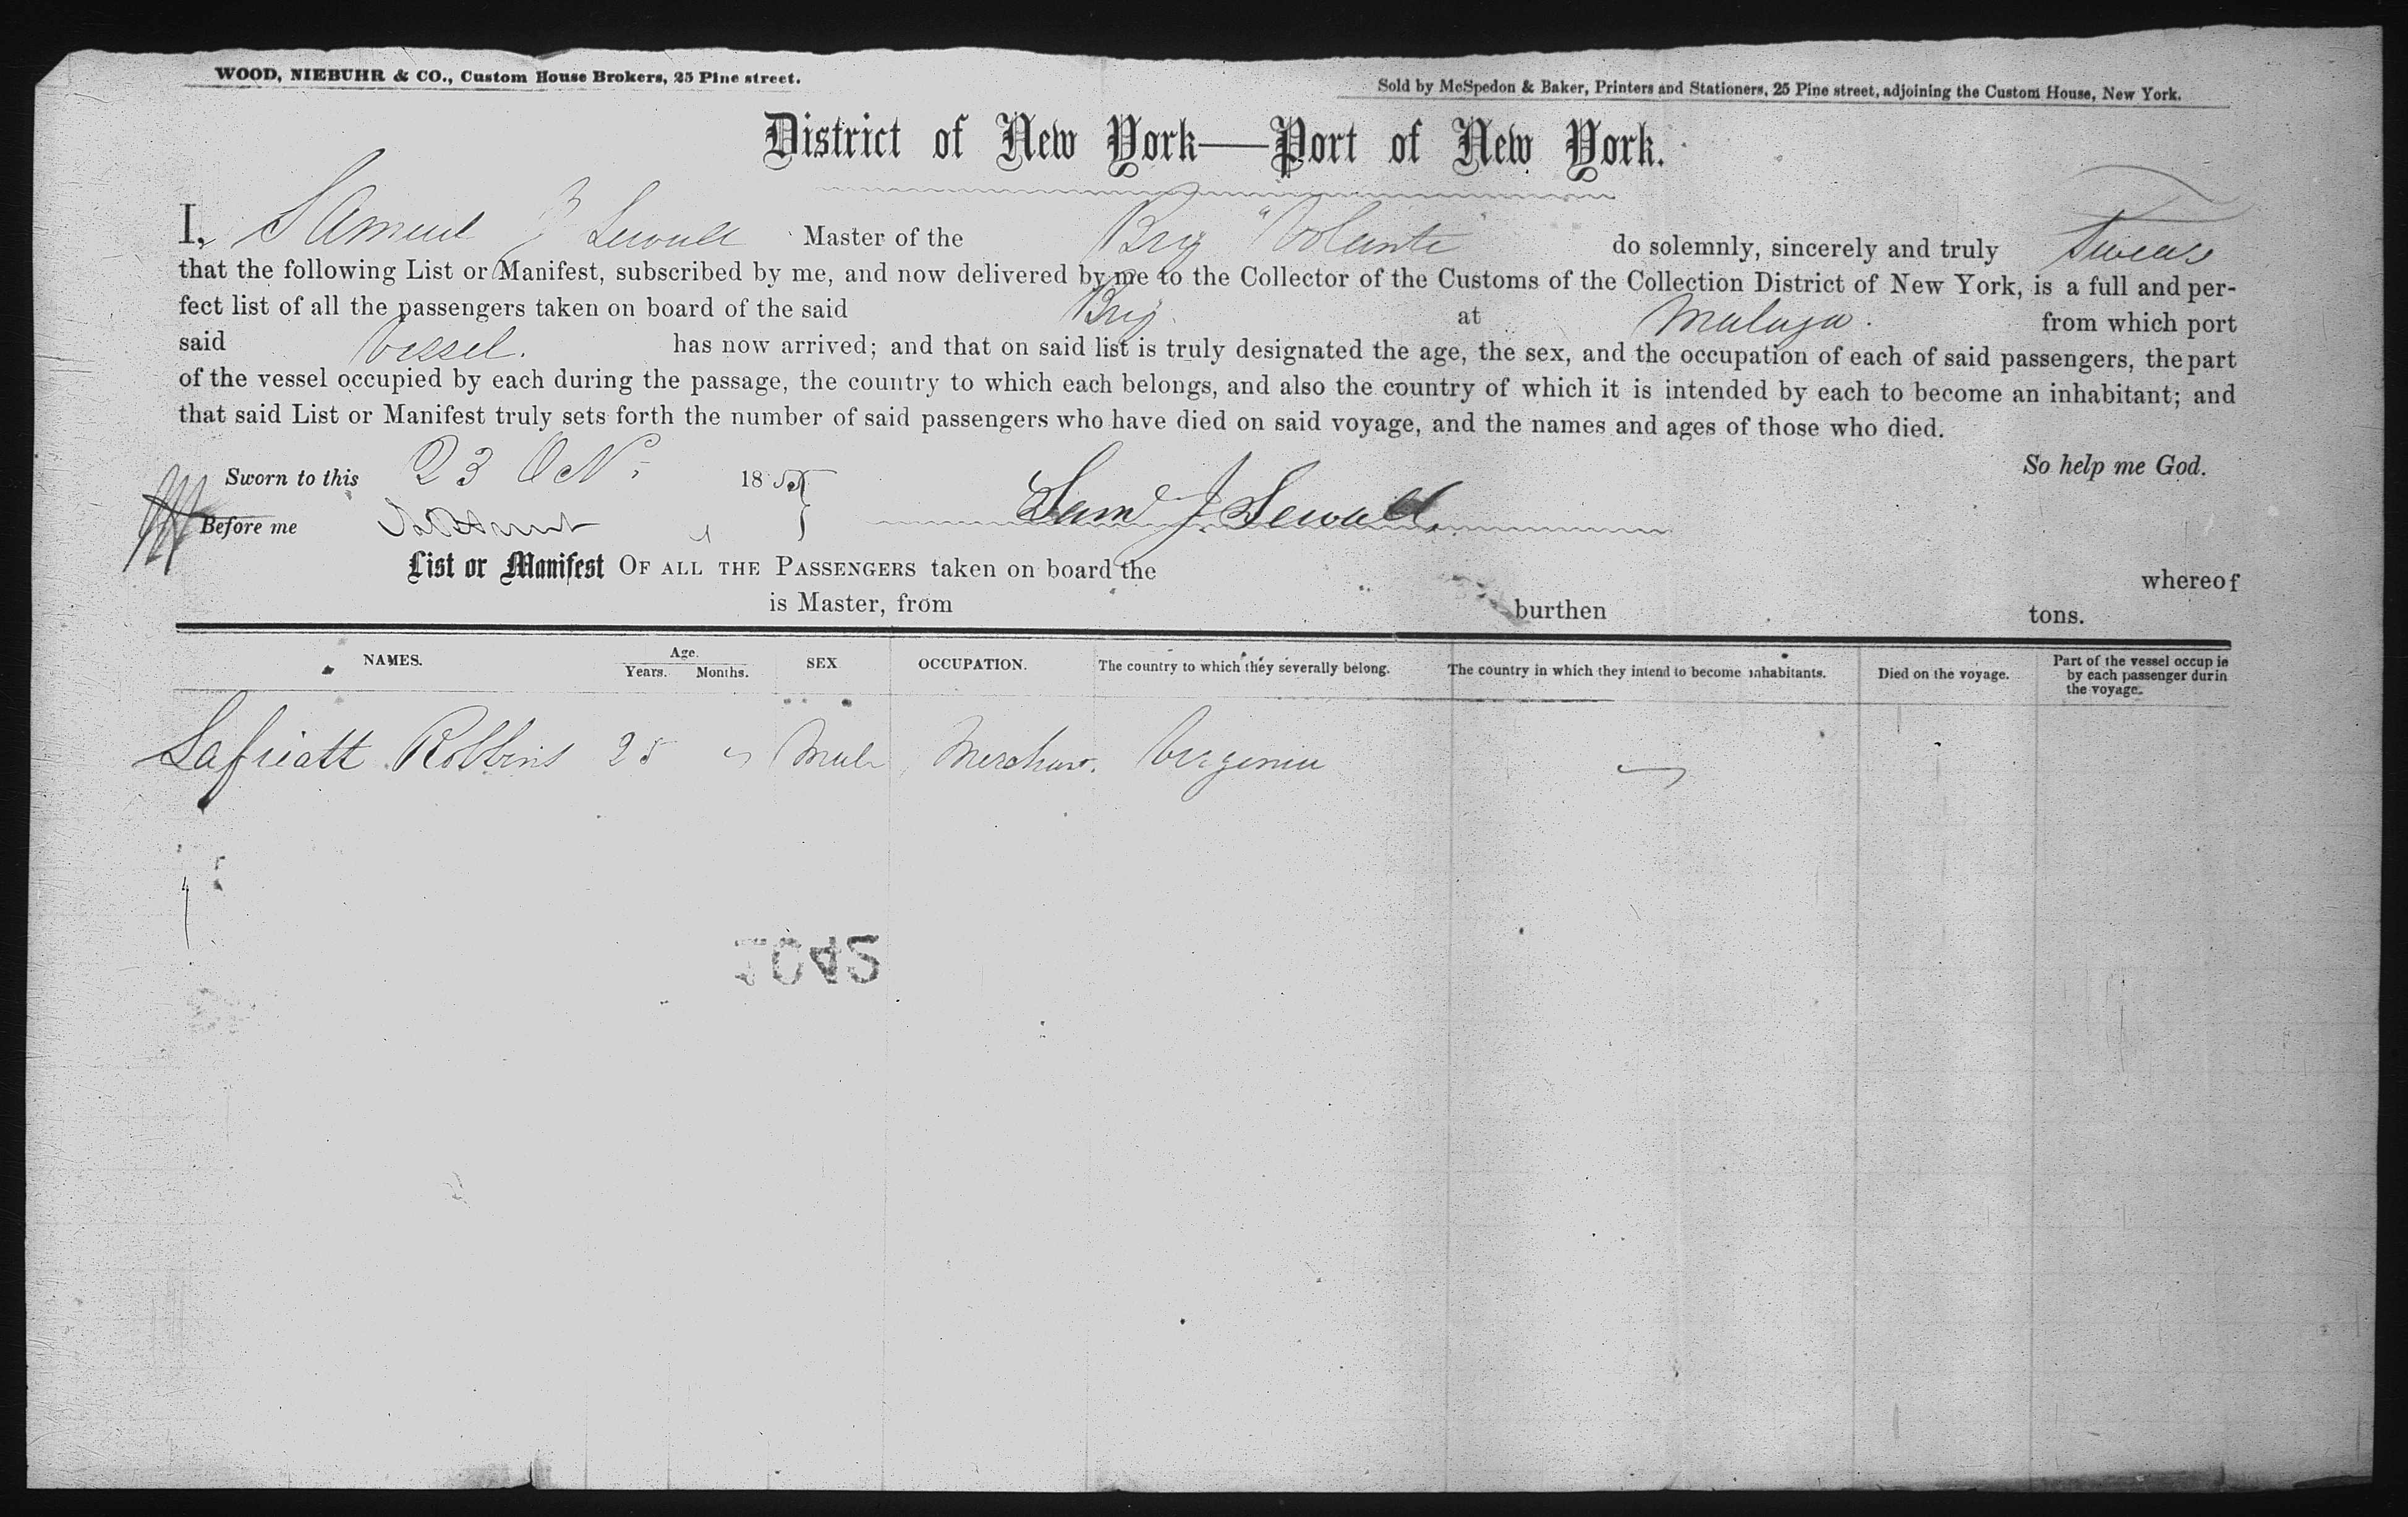 WOOD, NIEBUHR & CO., Custom House Brokers, 25 Pine street.
Sold by McSpedon & Baker, Printers and Stationers, 25 Pine street, adjoining the Custom House, New York.
District of New York—Port of New York.
I, Samuel J Sewall Master of the Brig "Volante" do solemnly, sincerely and truly Swear
that the following List or Manifest, subscribed by me, and now delivered by me to the Collector of the Customs of the Collection District of New York, is a full and per-
fect list of all the passengers taken on board of the said Brig at Malaga. from which port
said Vessel. has now arrived; and that on said list is truly designated the age, the sex, and the occupation of each of said passengers, the part
of the vessel occupied by each during the passage, the country to which each belongs, and also the country of which it is intended by each to become an inhabitant; and
that said List or Manifest truly sets forth the number of said passengers who have died on said voyage, and the names and ages of those who died.
So help me God.
Sworn to this 23 Oct. 1855
Before me
Saml J. Sewall.
List or Manifest OF ALL THE PASSENGERS taken on board the whereof
is Master, from burthen tons.
NAMES. Age. Years. Months. SEX OCCUPATION. The country to which they severally belong. The country in which they intend to become inhabitants. Died on the voyage. Part of the vessel occup ie by each passenger durin the voyage.
Lafriatt Robbins 25 " Male Merchant. Virginia
1042